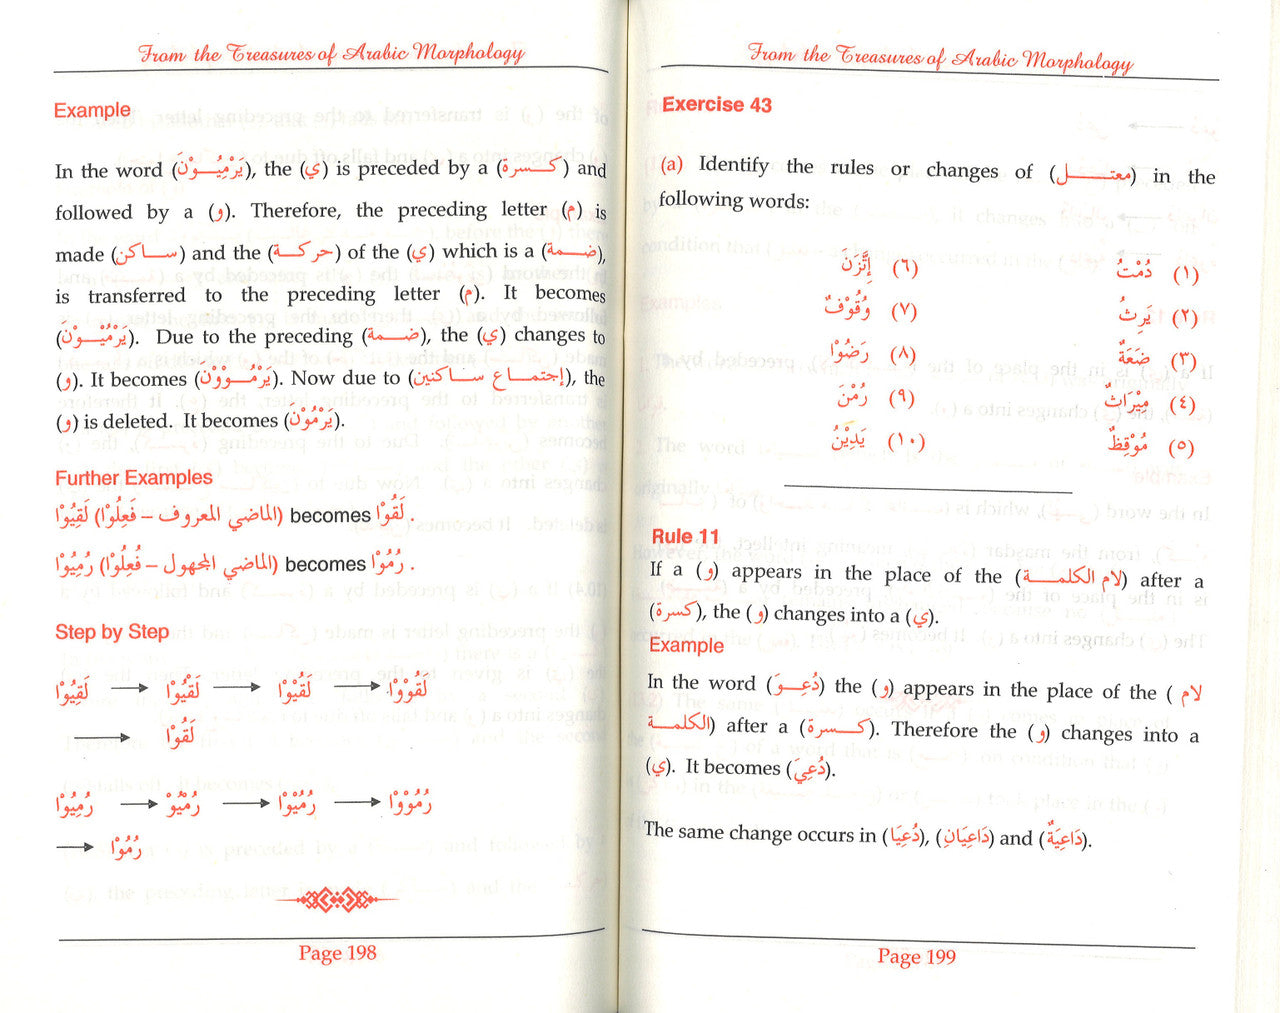 From the Treasures of Arabic Morphology
Example
In the word (يَرْمِيُوْنَ), the (ي) is preceded by a (كسرة) and
followed by a (و). Therefore, the preceding letter (م) is
made (ساكن) and the (حركة) of the (ي) which is a (ضمة),
is transferred to the preceding letter (م). It becomes
(يَرْمُيْوْنَ). Due to the preceding (ضمة), the (ي) changes to
(و). It becomes (يَرْمُوْوْنَ). Now due to (إجتماع ساكنين), the
(و) is deleted. It becomes (يَرْمُوْنَ).
Further Examples
لَقِيُوْا (الماضي المعروف – فَعِلُوْا) becomes لَقُوْا .
رُمِيُوْا (الماضي المجهول – فُعِلُوْا) becomes رُمُوْا .
Step by Step
لَقِيُوْا → لَقْيُوْا → لَقُيْوْا → لَقُوْوْا
→ لَقُوْا
رُمِيُوْا → رُمْيُو → رُمُيْوْا → رُمُوْوْا
→ رُمُوْا
Page 198
From the Treasures of Arabic Morphology
Exercise 43
(a) Identify the rules or changes of (معتل) in the
following words:
(١) دُمْتُ (٦) إِتَّزَنَ
(٢) يَرِثُ (٧) وُقُوْفٌ
(٣) ضِعَةٌ (٨) رَضُوْا
(٤) مِيْرَاثٌ (٩) رُمْنَ
(٥) مُوْقِظٌ (١٠) يَدِيْنُ
Rule 11
If a (و) appears in the place of the (لام الكلمة) after a
(كسرة), the (و) changes into a (ي).
Example
In the word (دُعِوَ) the (و) appears in the place of the (لام
الكلمة) after a (كسرة). Therefore the (و) changes into a
(ي). It becomes (دُعِيَ).
The same change occurs in (دُعِيَا), (دَاعِيَانِ) and (دَاعِيَةٌ).
Page 199